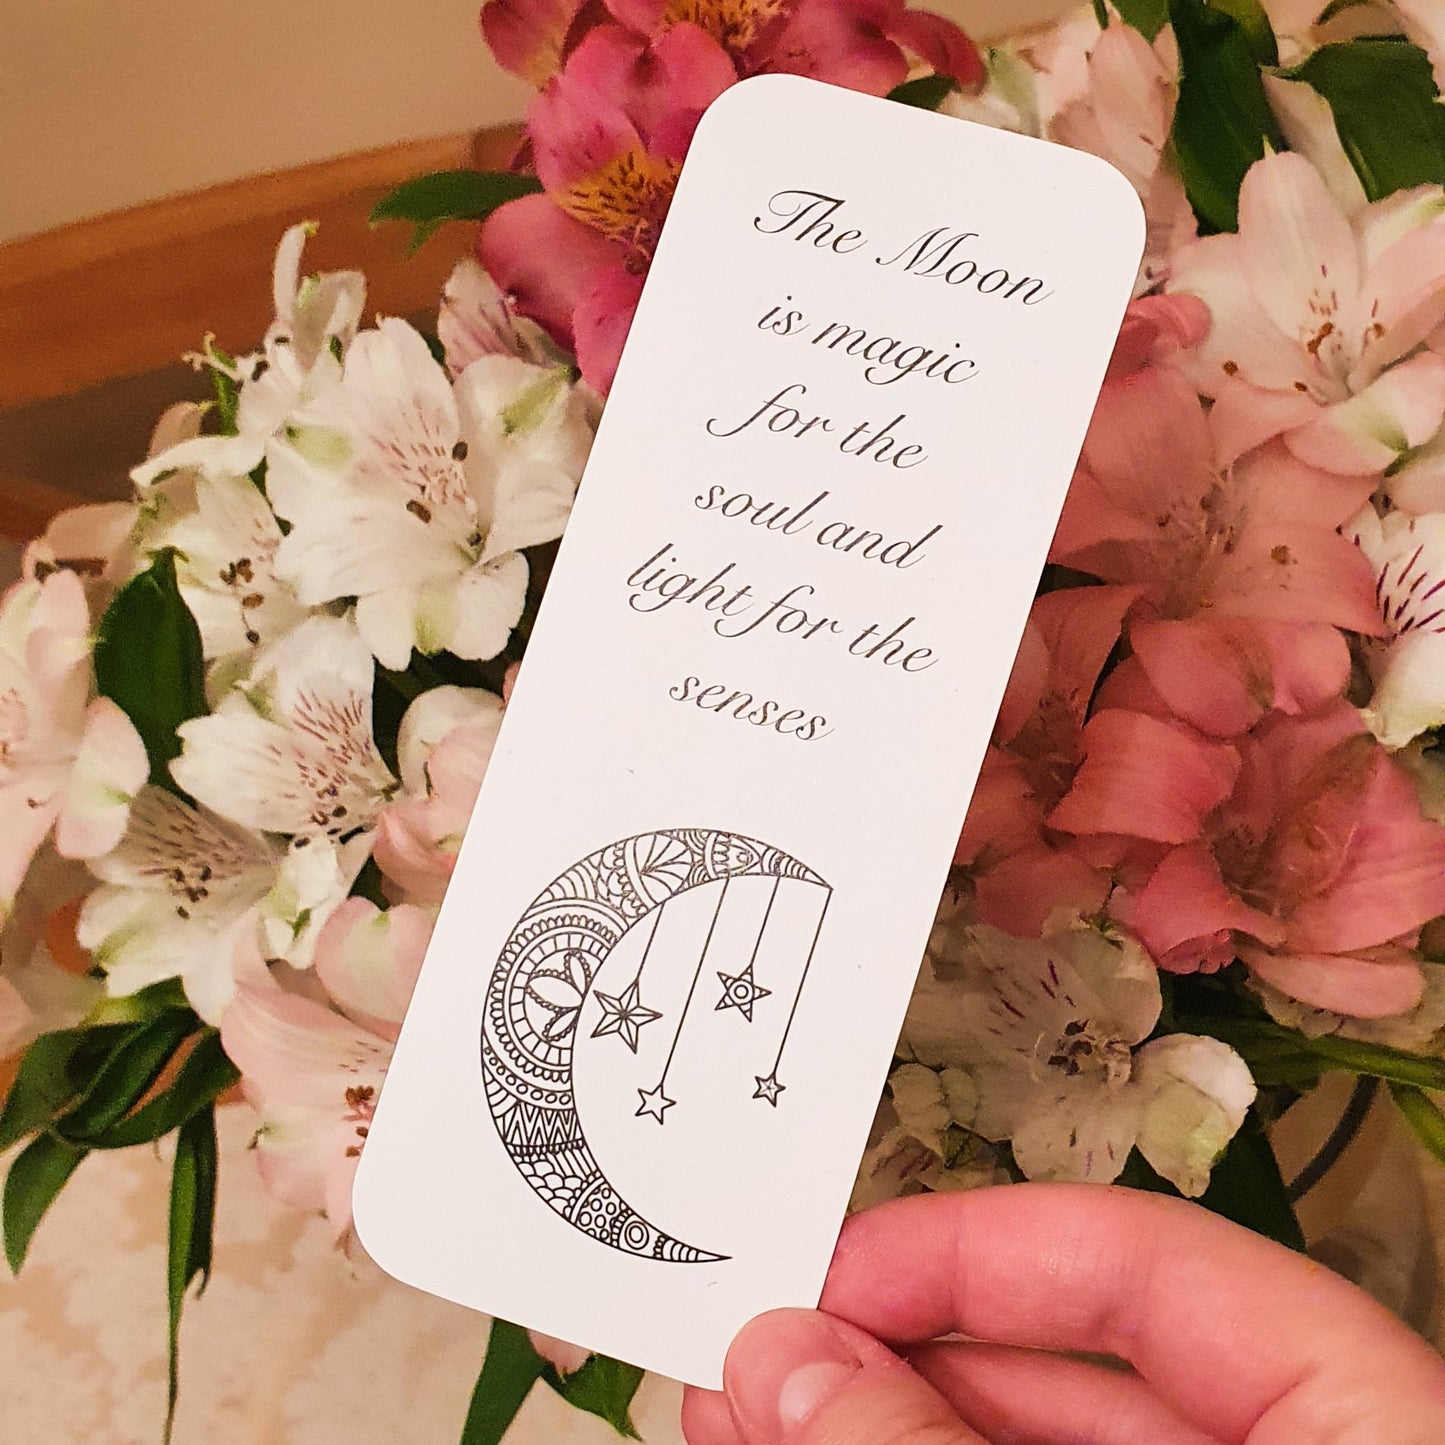 The Moon
is magic
for the
soul and
light for the
senses